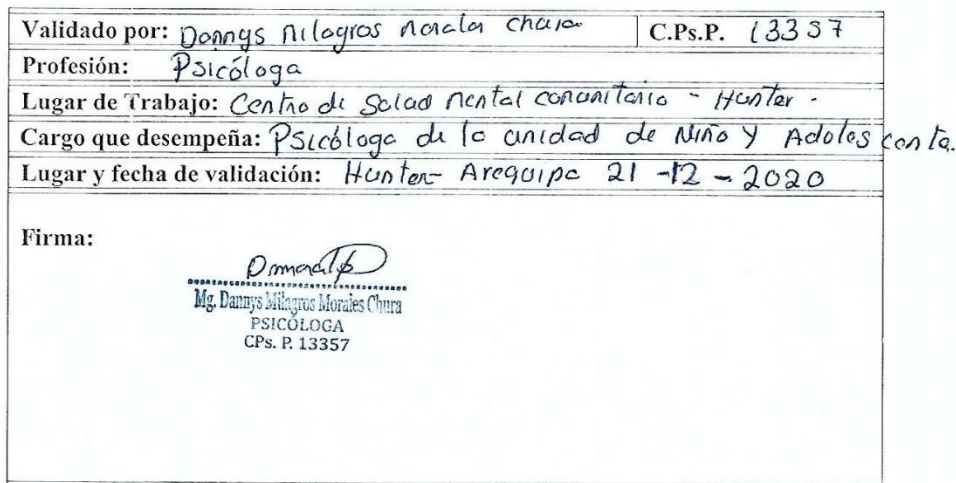 Validado por: Dannys Milagros Morales Chura C.Ps.P. 13357
Profesión: Psicóloga
Lugar de Trabajo: Centro de Salud Mental comunitario - Hunter.
Cargo que desempeña: Psicóloga de la unidad de Niño y Adolescente.
Lugar y fecha de validación: Hunter- Arequipa 21 -12 - 2020
Firma:
Mg. Dannys Milagros Morales Chura
PSICÓLOGA
CPs. P. 13357